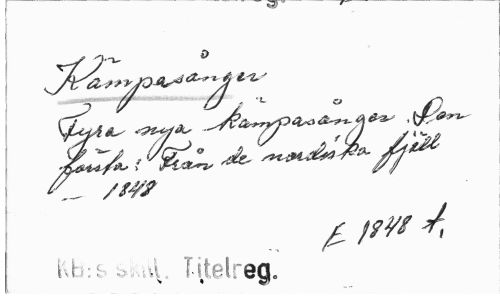 Kämpasånger
Fyra nya kämpasånger. Den
första: Från de nordiska fjäll
— 1848
E 1848 t.
KB:s skill. Titelreg.